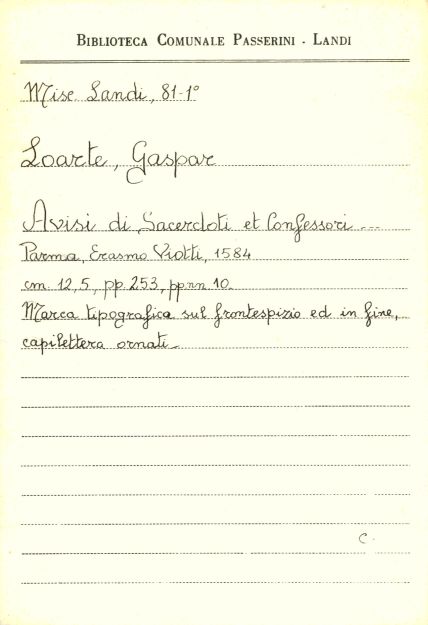 BIBLIOTECA COMUNALE PASSERINI - LANDI
Misc. Landi, 81-1º
Loarte, Gaspar
Avisi di Sacerdoti et Confessori ...
Parma, Erasmo Viotti, 1584
cm. 12,5, pp. 253, pp.nn. 10
Marca tipografica sul frontespizio ed in fine,
capilettera ornati_
C.